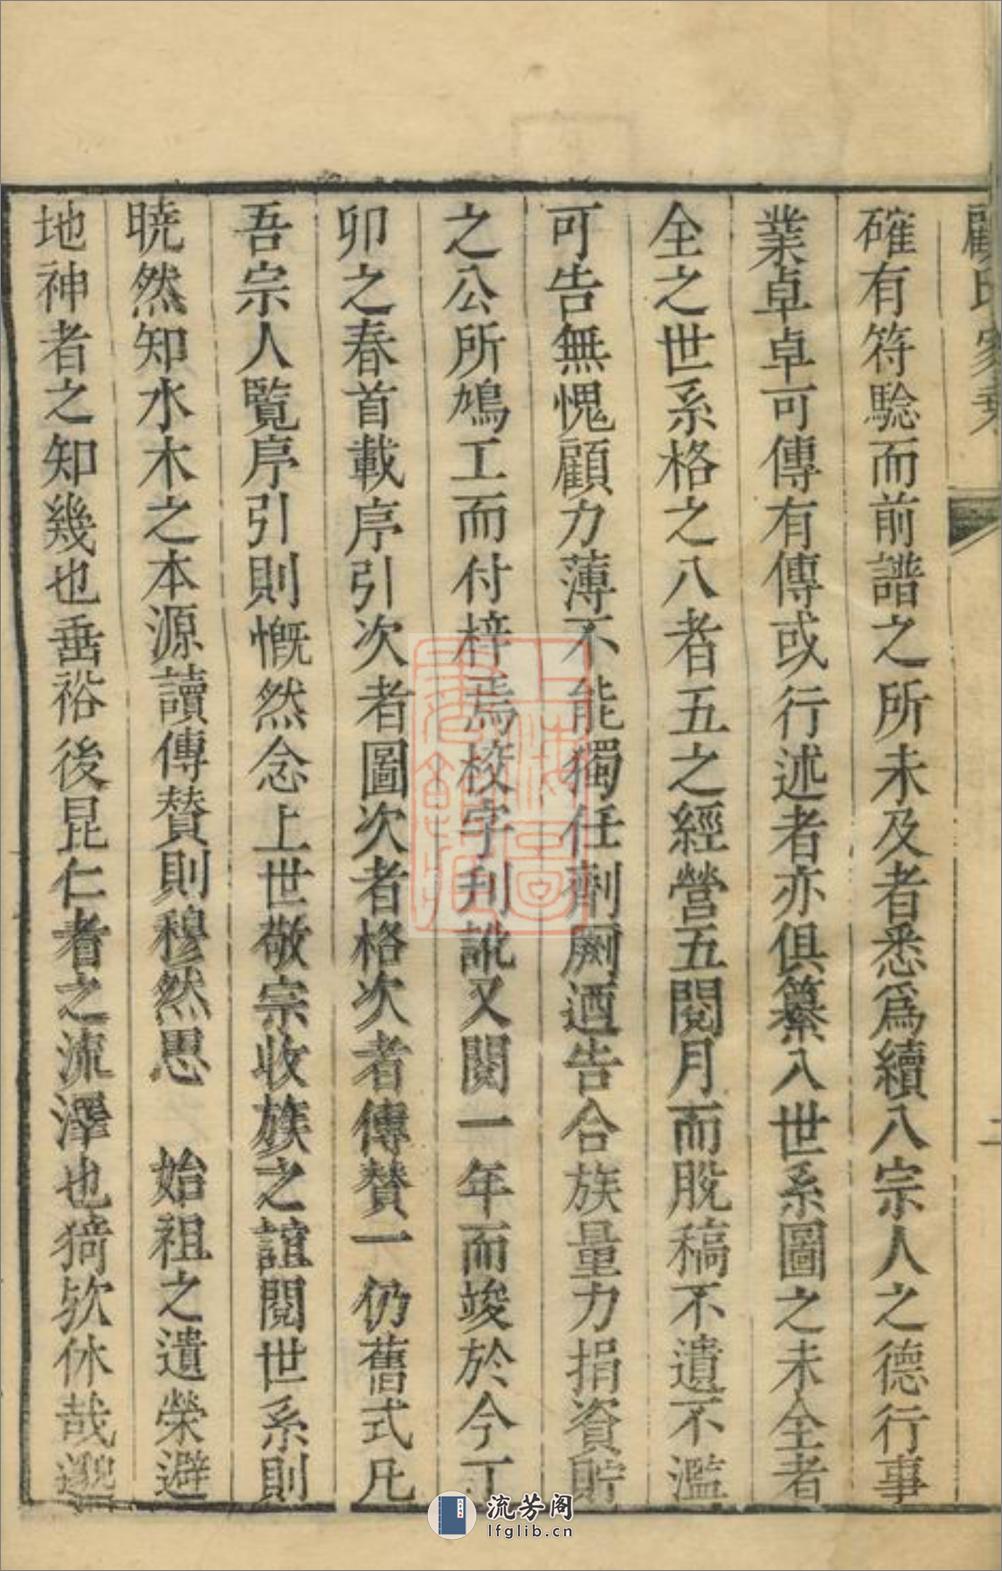 顧氏家乘
二
確有符驗而前譜之所未及者悉爲續入宗人之德行事
業卓卓可傳有傳或行述者亦俱纂入世系圖之未全者
全之世系格之八者五之經營五閱月而脫稿不遺不濫
可告無愧顧力薄不能獨任劑劂迺告合族量力捐資貯
之公所鳩工而付梓焉校字刊訛又閱一年而竣於今丁
卯之春首載序引次者圖次者格次者傳贊一仍舊式凡
吾宗人覽序引則慨然念上世敬宗收族之誼閱世系則
曉然知水木之本源讀傳贊則穆然思　始祖之遺榮避
地神者之知幾也垂裕後昆仁者之流澤也猗歟休哉
流芳阁
lfglib.cn